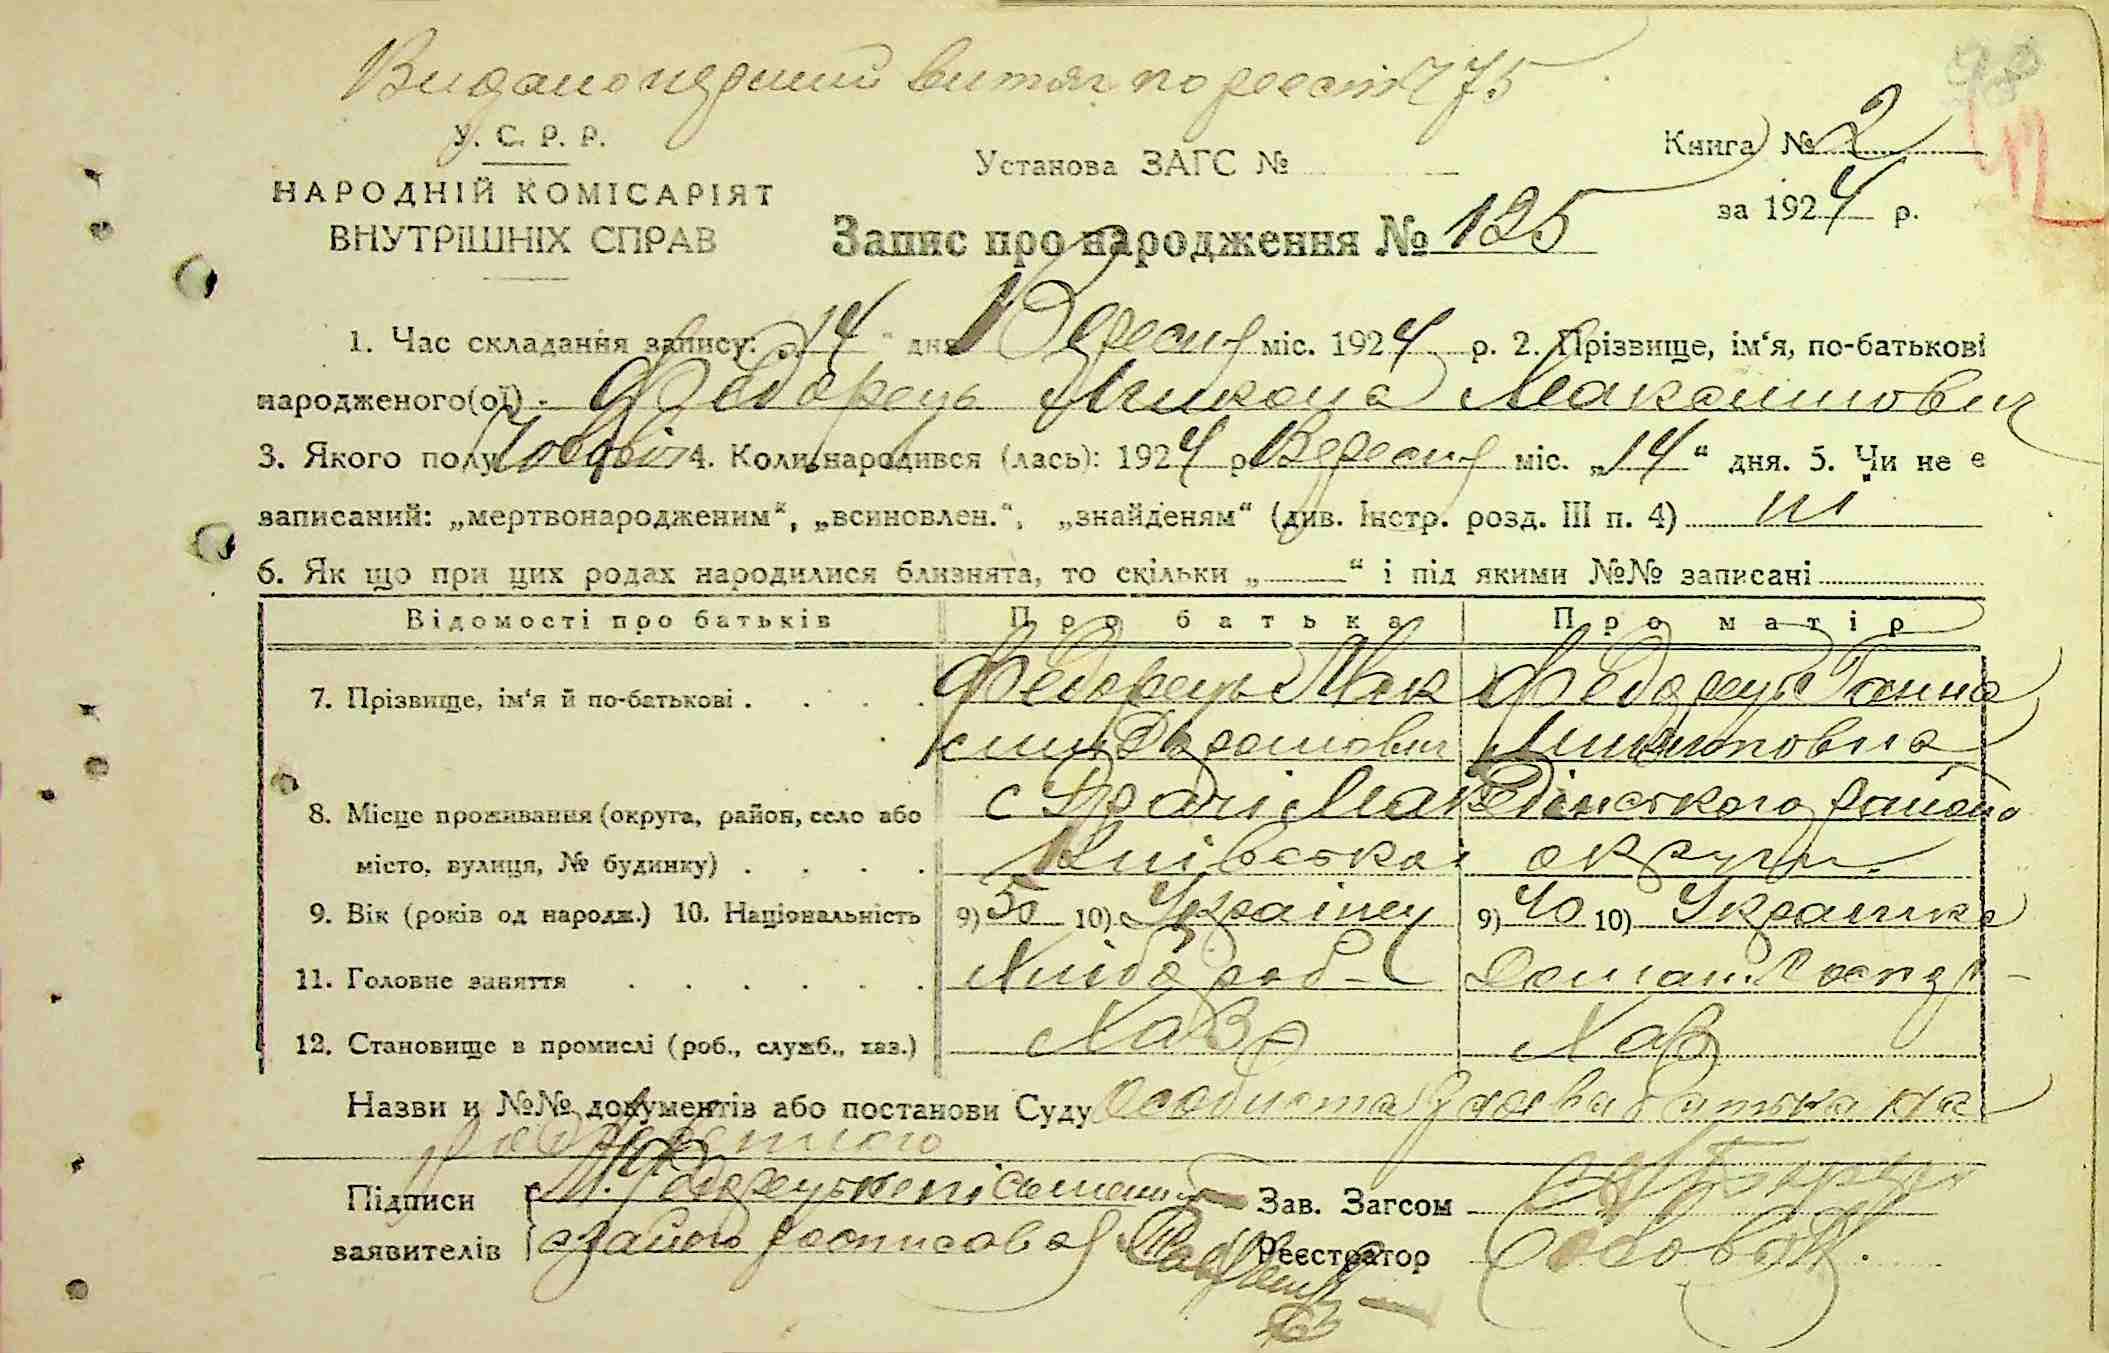 Видано перший витяг по реєстр 775
У. С. Р. Р.
НАРОДНІЙ КОМІСАРІЯТ
ВНУТРІШНІХ СПРАВ
Установа ЗАГС №
Книга № 2
за 1924 р.
Запис про народження № 125
1. Час складання запису: „14“ дня Вересня міс. 1924 р. 2. Прізвище, ім‘я, по-батькові
народженого(ої) - Федорець Микола Максимович
3. Якого полу Чоловіч 4. Коли народився (лась): 1924 р. Вересня міс. „14“ дня. 5. Чи не є
записаний: „мертвонародженим“, „всиновлен.“, „знайденям“ (див. Інстр. розд. III п. 4) ні
6. Як що при цих родах народилися близнята, то скільки „ “ і під якими №№ записані
Відомості про батьків Про батька Про матір
7. Прізвище, ім‘я й по-батькові . . . . Федорець Мак Федорець Ганна
сим Микитовна
8. Місце проживання (округа, район, село або с Македонського району
місто, вулиця, № будинку) . . . . Київської округи
9. Вік (років од народж.) 10. Національність 9) 50 10) Українец 9) 40 10) Українка
11. Головне заняття . . . . . . Хлібороб Домаш. Господ
12. Становище в промислі (роб., служб., хаз.) Хазя Хаз
Назви и №№ документів або постанови Суду Особиста заява батька на
Підписи М. Федорець неписьменний Зав. Загсом
заявителів за його росписався Реєстратор